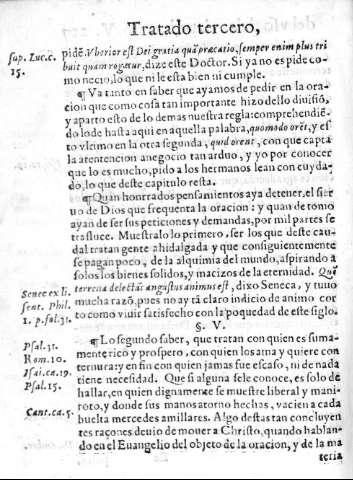 Tratado tercero,
sup. Luc. c.
15.
pidẽ. Vberior est Dei gratia quã præcatio, semper enim plus tri
buit quam rogetur, dize este Doctor. Si ya no es pide co-
mo necio, lo que ni le esta bien ni cumple.
¶ Va tanto en saber que ayamos de pedir en la ora-
cion que como cosa tan importante hizo dello diuisiõ,
y aparto esto de lo demas nuestra regla: comprehendiẽ-
do lo de hasta aqui en aquella palabra, quomodo orẽt, y es
to vltimo en la otra segunda, quid orent, con que capta
la atentencion a negocio tan arduo, y yo por conocer
que lo es mucho, pido a los hermanos lean con cuyda-
do, lo que deste capitulo resta.
¶ Quan honrrados pensamientos aya de tener, el sier
uo de Dios que frequenta la oracion: y quan de tomo
ayan de ser sus peticiones y demandas, por mil partes se
trasluce. Muestralo lo primero, ser los que deste cau-
dal tratan gente ahidalgada y que consiguientemente
se pagan poco, de la alquimia del mundo, aspirando a
solos los bienes solidos, y macizos de la eternidad. Quẽ
Senec ex li.
sent. Phil.
1. p. fol. 31.
terrena delectãt angustus animus est, dixo Seneca, y tuuo
mucha razõ, pues no ay tã claro indicio de animo cor
to como viuir satisfecho con la poquedad de este siglo.
§. V.
Psal. 31.
Rom. 10.
Isai. ca. 19.
Psal. 15.
Cant. ca. 5.
¶ Lo segundo saber, que tratan con quien es suma-
mente rico y prospero, con quien los ama y quiere con
ternura: y en fin con quien jamas fue escaso, ni de nada
tiene necesidad. Que si alguna fele conoce, es solo de
hallar, en quien dignamente se muestre liberal y mani-
roto, y donde sus manos a torno hechas, vacien a cada
buelta mercedes a millares. Algo destas tan concluyen
tes raçones deuio de mouer a Christo, quando hablan-
do en el Euangelio del objeto de la oracion, y de la ma
teria